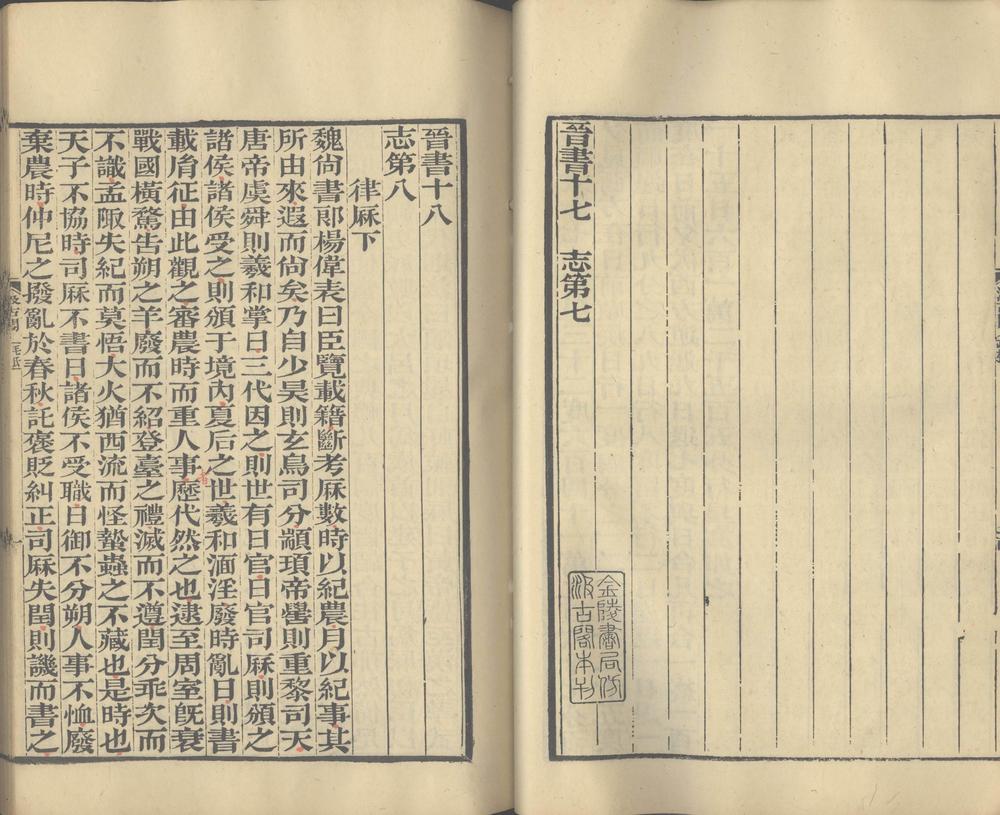 晉書十七　志第七
金陵書局仿
汲古閣本刊
晉書十八
志第八
律厤下
魏尙書郞楊偉表曰臣覽載籍斷考厤數時以紀農月以紀事其
所由來遐而尙矣乃自少昊則玄鳥司分顓頊帝嚳則重黎司天
唐帝虞舜則羲和掌日三代因之則世有日官日官司厤則頒之
諸侯諸侯受之則頒于境內夏后之世羲和湎淫廢時亂日則書
載胤征由此觀之審農時而重人事歷代然之也逮至周室旣衰
戰國橫騖告朔之羊廢而不紹登臺之禮滅而不遵閏分乖次而
不識孟陬失紀而莫悟大火猶西流而怪蟄蟲之不藏也是時也
天子不協時司厤不書日諸侯不受職日御不分朔人事不恤廢
棄農時仲尼之撥亂於春秋託褒貶糾正司厤失閏則譏而書之